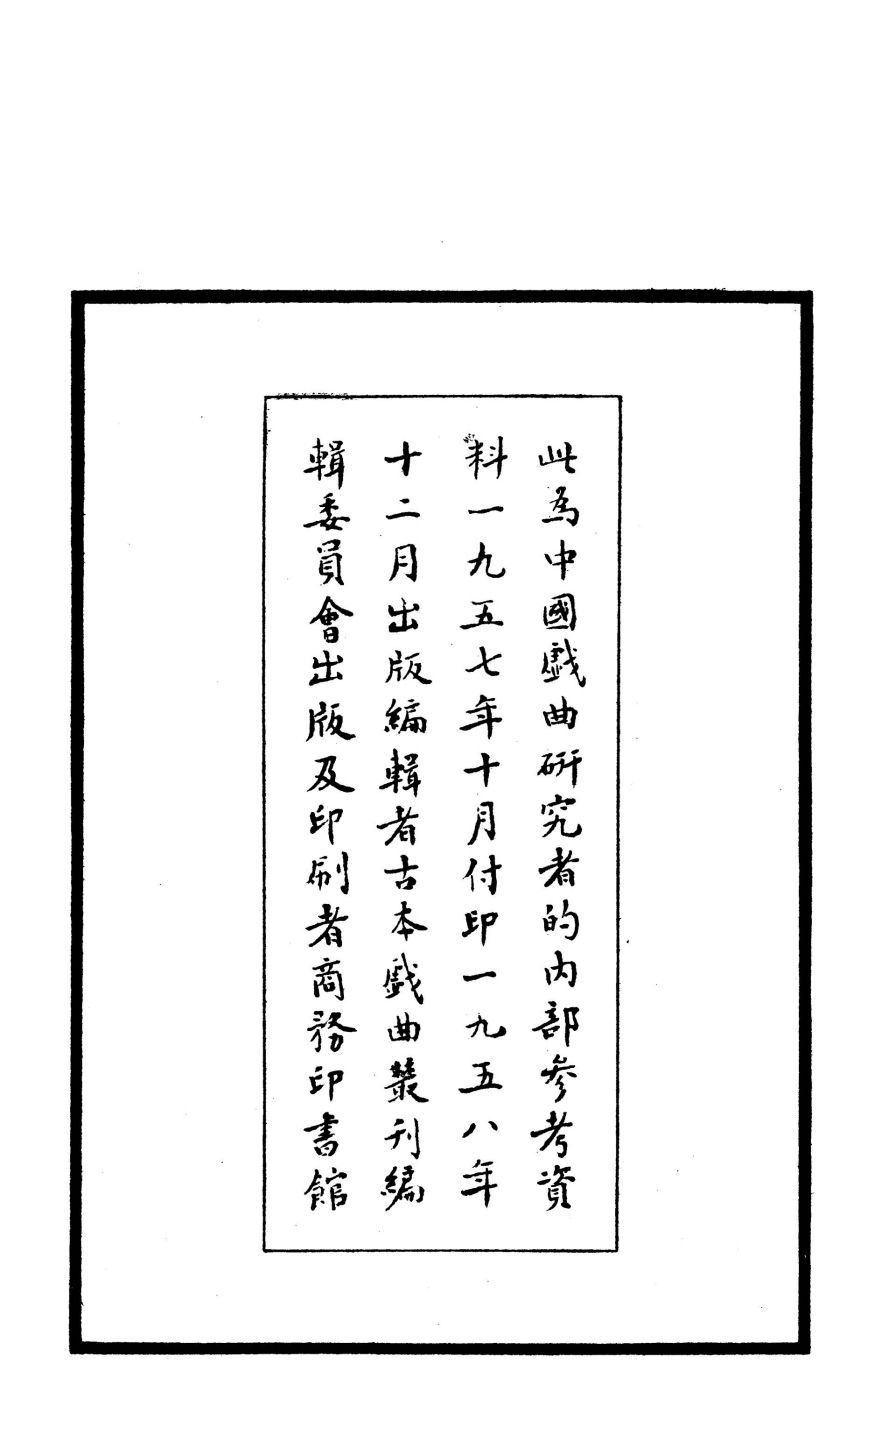 此為中國戲曲研究者的内部參考資
料一九五七年十月付印一九五八年
十二月出版編輯者古本戲曲叢刊編
輯委員會出版及印刷者商務印書館